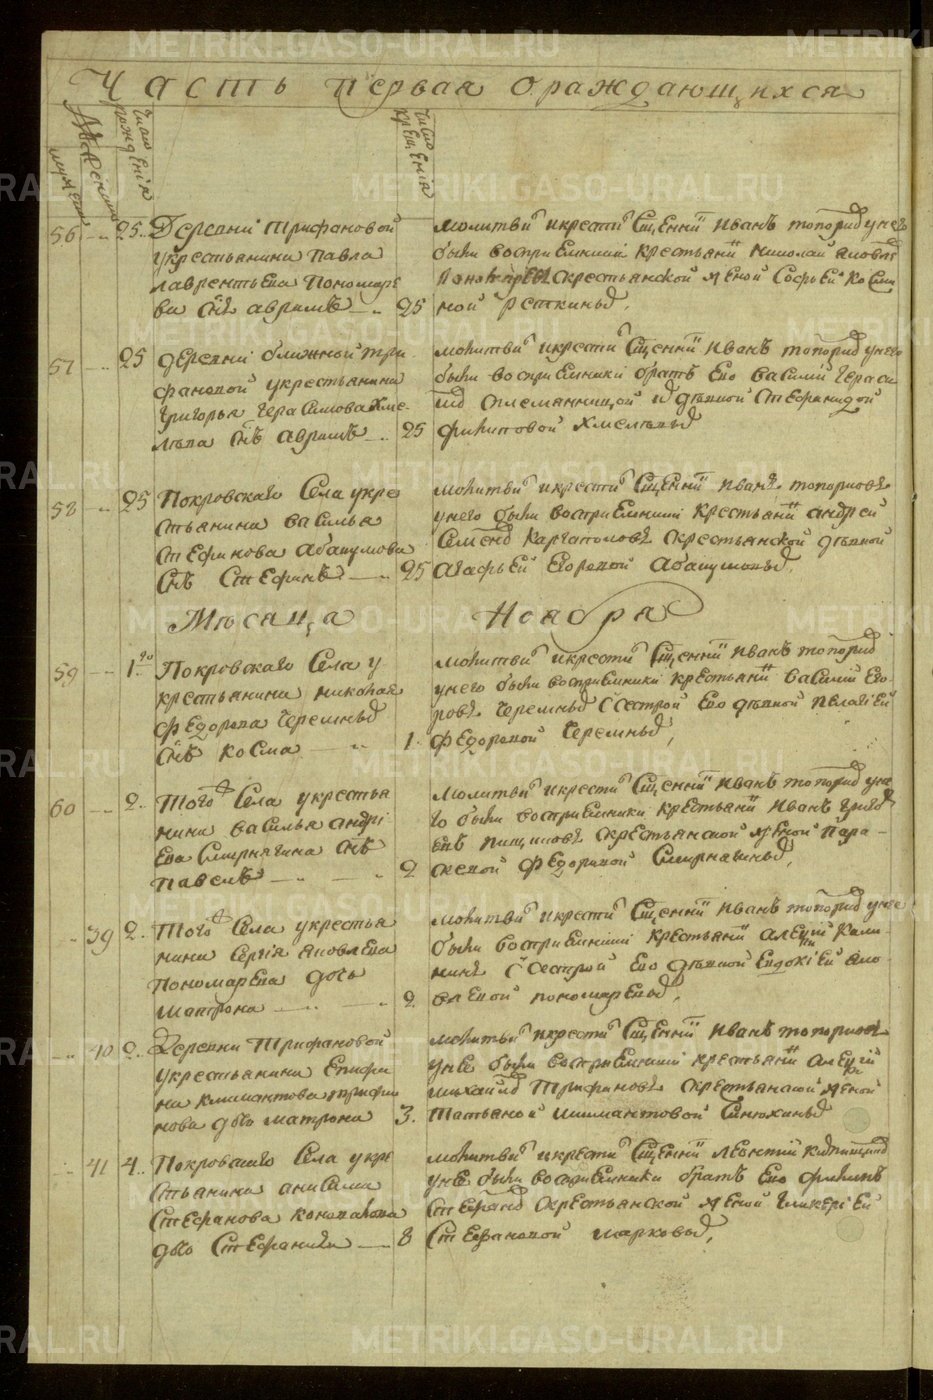 Часть первая ораждающихся
Число рождения
Число крещения
мужеска
женска
56 25. Деревни Трифановой
укрестьянина Павла
лаврентьева Пономаре
ва снъ аврамъ 25
молитви икрести Сщеннй Иванъ топорид унего
были восприемники крестьянй николай
скрестьянской женой Софьей Косми
ной Реткиных.
57 25 деревни ближной три
фановой укрестьянина
григорья герасимова Хме
лева снъ аврамъ 25
молитви икрести Сщеннй Иванъ топорид унего
были восприемники братъ Ево василий гераси
мд сплемянницой девкой Стефанидой
филиповой Хмелевых
58 25 Покровскаго Села укре
стьянина василья
стефанова абакумова
снъ Стефанъ 25
молитви икрести Сщеннй Иванъ топорковъ
унего были восприемники крестьянй андрей
Семенд Каргаполовъ скрестьянской девкой
агафьей Егоровой Абакумовых.
Месяца Ноября
59 1го Покровскаго Села у
крестьянина николая
федорова Черемных
снъ косма 1.
молитви икрести Сщеннй Иванъ топорид
унего были восприемники крестьянй василий Его
ровъ Черемных Ссестрой Ево девкой пелагией
федоровой Черемных,
60 2. Того Села укрестья
нина василья андрі
ева Смирнягина снъ
павелъ 2
молитви икрести Сщеннй Иванъ топорид уне
го были восприемники крестьянй Иванъ григор
евъ пищиковъ скрестьянской женой Пара
скевой федоровой Смирнягиных,
39 2. Того Села укрестья
нина Сергія яковлева
пономарева дочь
матрона 2
молитви икрести Сщеннй Иванъ топорид унее
были восприемники крестьянй алеѯій Кали
нинъ Ссестрой Ево девкой Евдокіей яко
влевой пономаревых,
40 2. Деревни Трифановой
укрестьянина Епифа
на климантова трифа
нова дочь матрона 3.
молитви икрести Сщеннй Иванъ топорковъ
унее были восприемники крестьянй алеѯій
михайлд Трифановъ скрестьянской женой
Татьяной климантовой Синюхиных
41 4. Покровскаго Села укре
стьянина анисима
Стефанова коновалова
дочь Стефанида 8
молитви икрести Сщеннй леонтий
унее были восприемники братъ Ево филипъ
Стефанд скрестьянской женой гликерией
Стефановой марковых,
METRIKI.GASO-URAL.RU